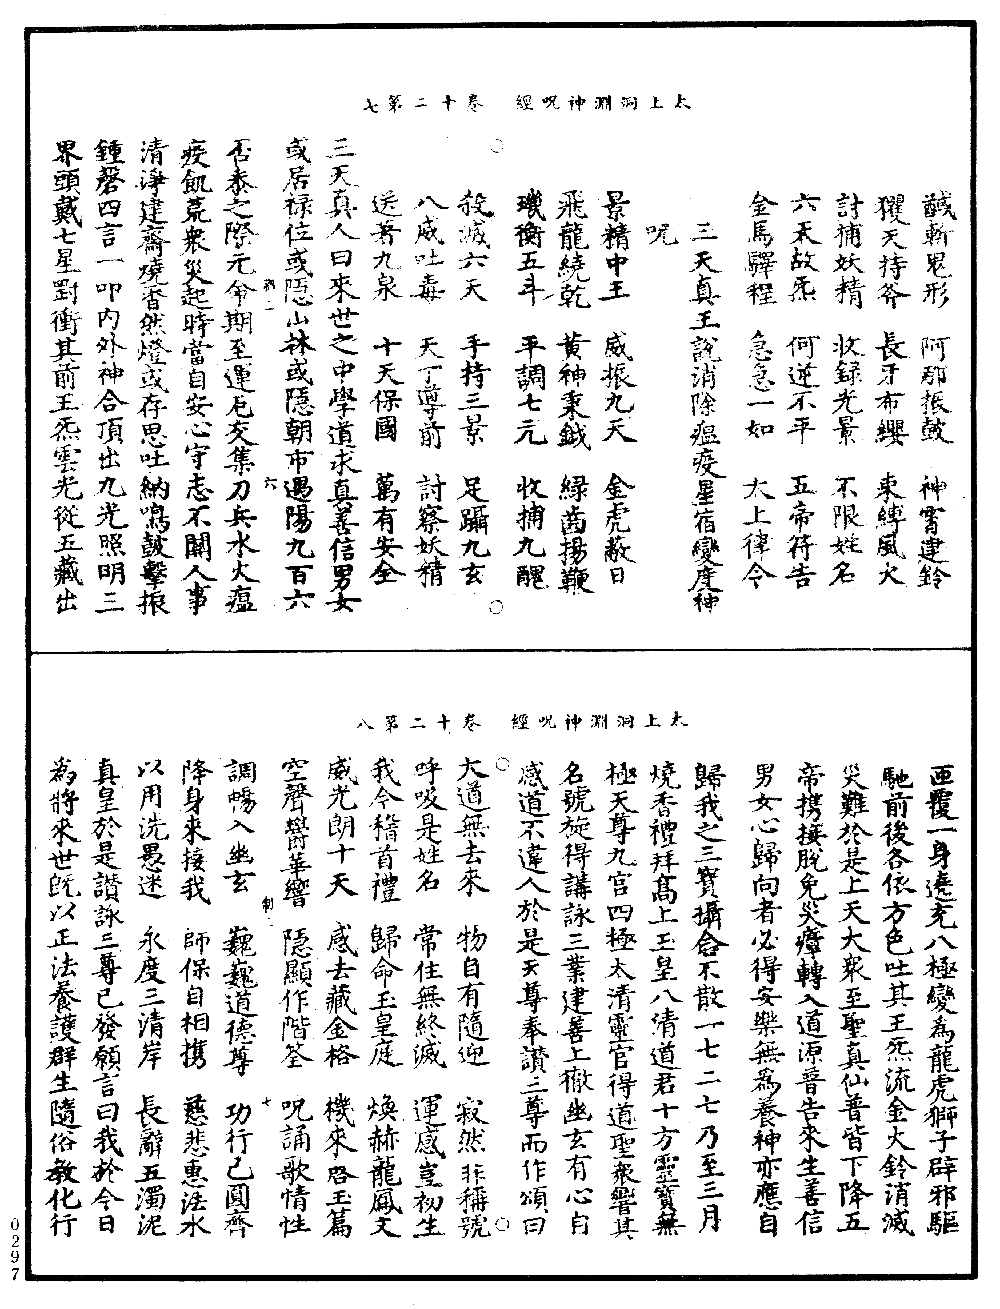 太上洞淵神呪經　卷十二第七
馘斬鬼形　阿那振鼓　神霄建鈴
玃天持斧　長牙布纓　束縛風火
討捕妖精　收録光景　不限姓名
六天故炁　何逆不平　五帝符告
金馬驛程　急急一如　太上律令
三天真王說消除瘟疫星宿變度神
呪
景精中王　威振九天　金虎蔽日
飛龍繞乾　黃神秉鉞　綠齒揚鞭
璣衡五斗　平調七元　收捕九醜
殺滅六天　手持三景　足躡九玄
八威吐毒　天丁導前　討察妖精
送著九泉　十天保國　萬有安全
三天真人曰來世之中學道求真善信男女
或居禄位或隱山林或隱朝市遇陽九百六
否泰之際元命期至運厄交集刀兵水火瘟
疫飢荒衆災起時當自安心守志不關人事
清淨建齋燒香然燈或存思吐納鳴鼓擊振
鍾磬四言一叩内外神合頂出九光照明三
界頭戴七星對衝其前王炁雲光從五藏出
太上洞淵神呪經　卷十二第八
匝覆一身遶充八極變為龍虎獅子辟邪驅
馳前後各依方色吐其王炁流金火鈴消滅
災難於是上天大衆至聖真仙普皆下降五
帝携接脫免災瘴轉入道源普告來生善信
男女心歸向者必得安樂無為養神亦應自
歸我之三寶攝念不散一七二七乃至三月
燒香禮拜髙上玉皇八清道君十方靈寶無
極天尊九宮四極太清靈官得道聖衆響其
名號旋得講詠三業建善上徹幽玄有心自
感道不違人於是天尊奉讃三尊而作頌曰
大道無去來　物自有隨迎　寂然非稱號
呼吸是姓名　常住無終滅　運感豈初生
我今稽首禮　歸命玉皇庭　煥赫龍鳳文
威光朗十天　感去藏金格　機來啓玉篇
空聲欝華響　隱顯作階筌　呪誦歌情性
調暢入幽玄　巍巍道德尊　功行已圓齊
降身來接我　師保自相携　慈悲惠法水
以用洗愚迷　永度三清岸　長辭五濁泥
真皇於是讃詠三尊已發願言曰我於今日
為將來世既以正法養護群生隨俗教化行
0297